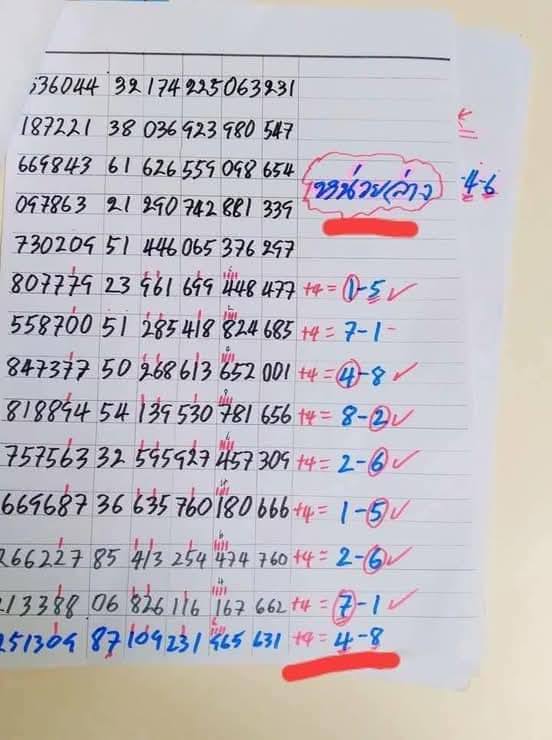 536044 32 174 225 063 231
187221 38 036 923 980 547
669843 61 626 559 098 654 หน่วยล่าง 4-6
097863 21 290 742 881 339
730209 51 446 065 376 297
807779 23 961 699 448 477 +4 = 1-5 ✓
558700 51 285 418 824 685 +4 = 7-1 -
847377 50 268 613 652 001 +4 = 4-8 ✓
818894 54 139 530 781 656 +4 = 8-2 ✓
757563 32 595 927 457 309 +4 = 2-6 ✓
669687 36 635 760 180 666 +4 = 1-5 ✓
266227 85 413 254 474 760 +4 = 2-6 ✓
213388 06 826 116 167 662 +4 = 7-1 ✓
251309 87 109 231 965 631 +4 = 4-8